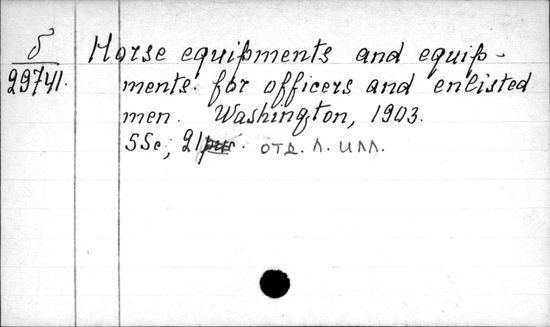 б
29741.
Horse equipments and equip-
ments for officers and enlisted
men. Washington, 1903.
55c, 21 отд. л. илл.